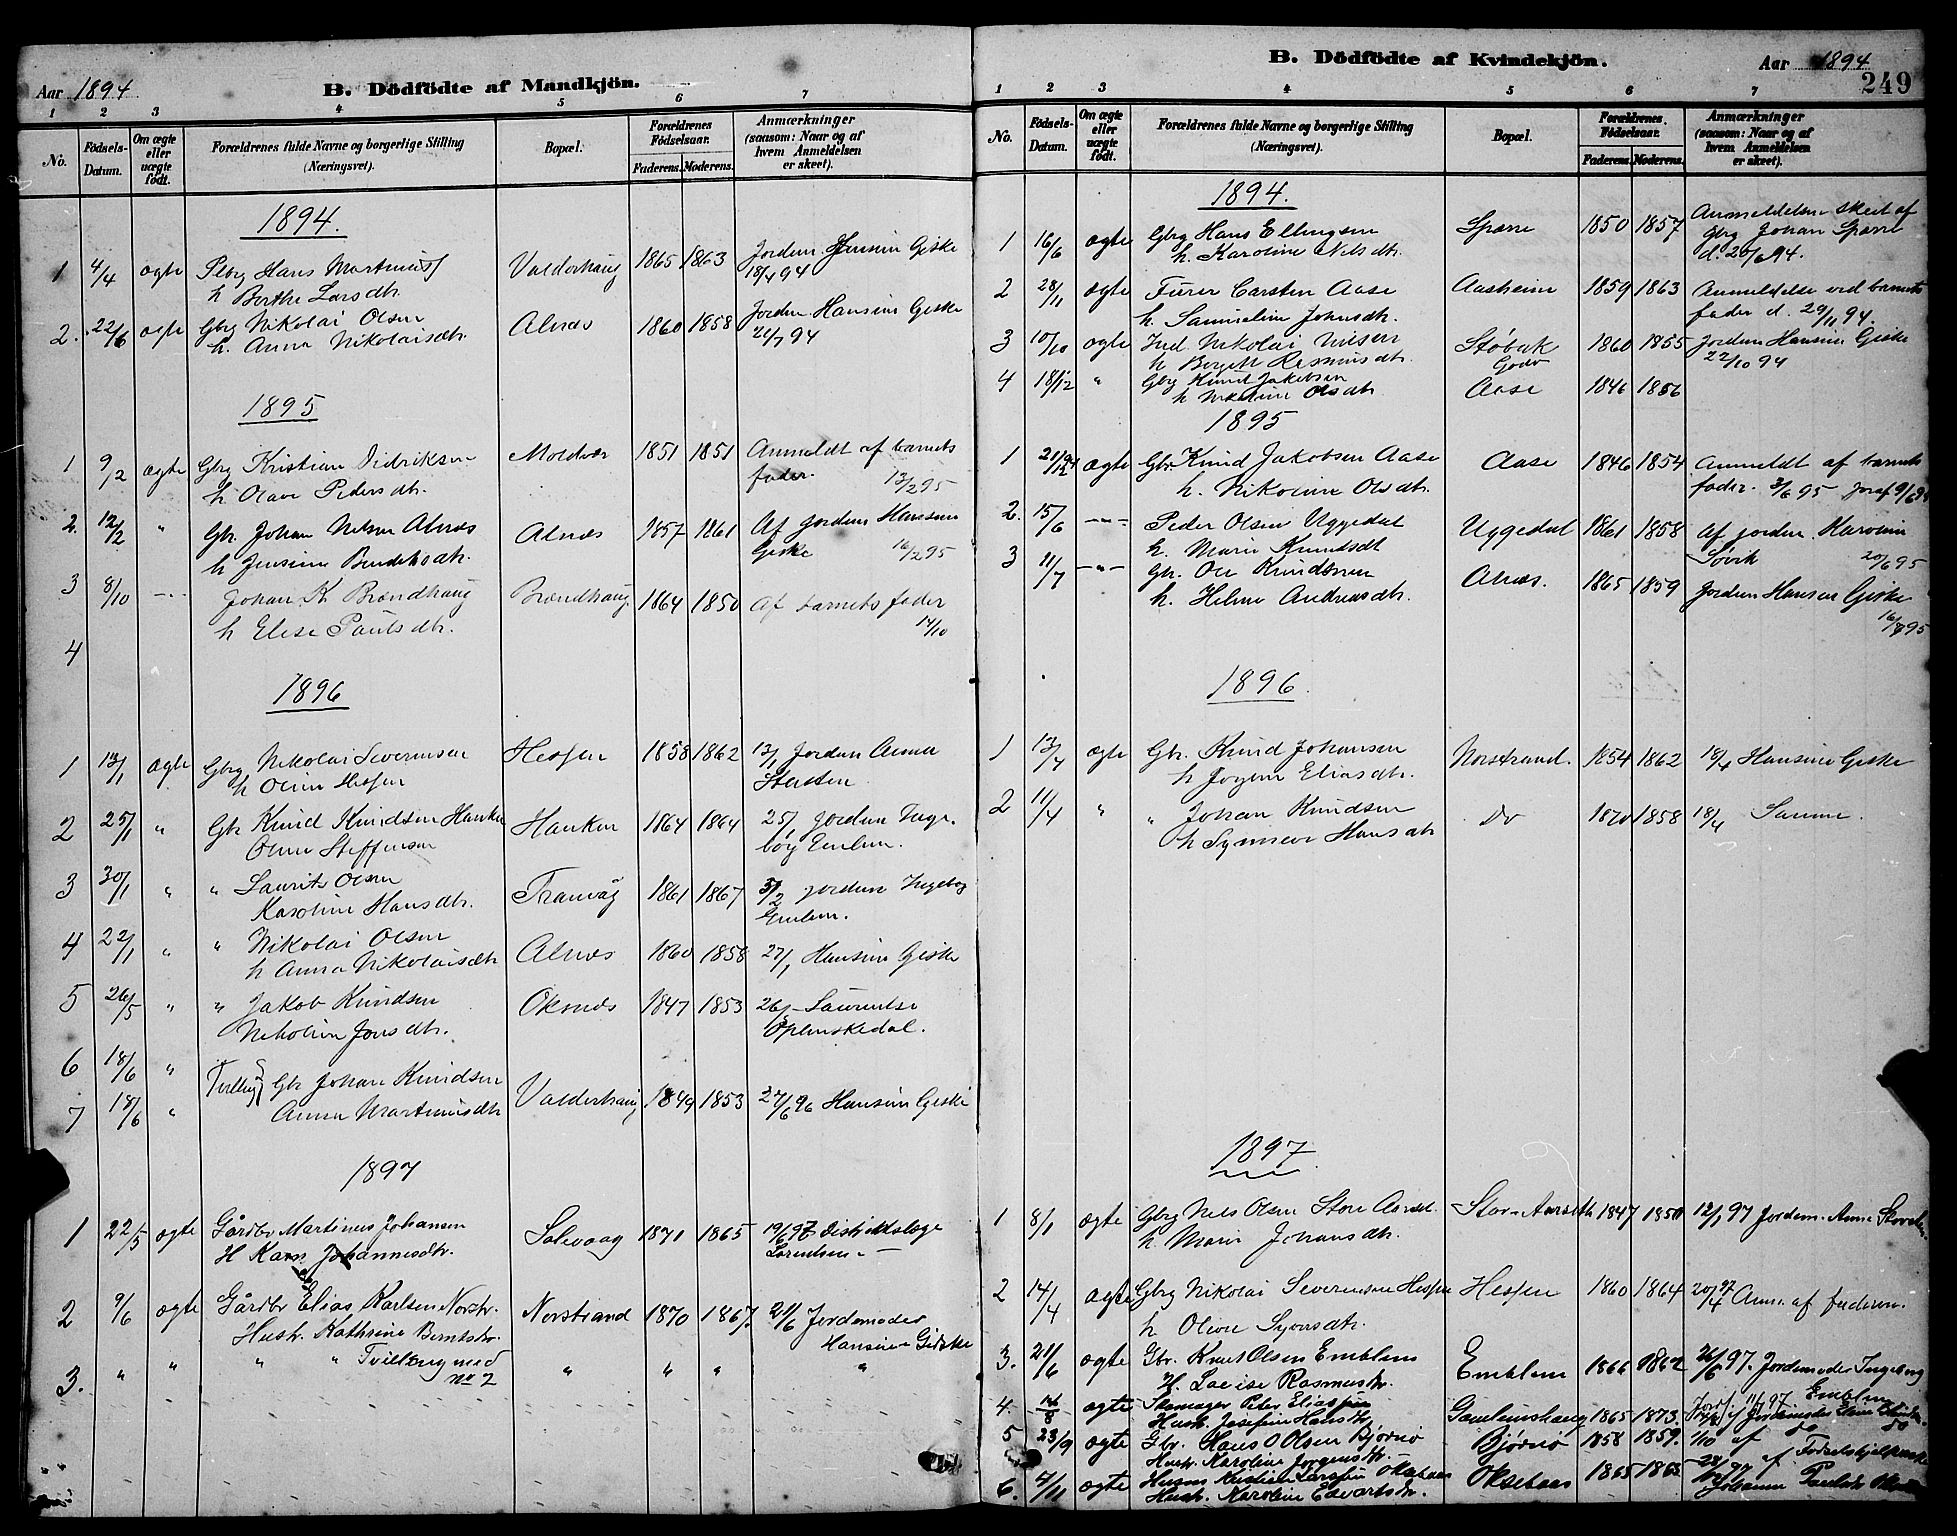 Aar 1894
B. Dödfödte af Mandkjön.
1 2 3 4 5 6 7
No.
Födsels-Datum.
Om ægte eller uægte födt.
Forældrenes fulde Navne og borgerlige Stilling
(Næringsvei).
Bopæl.
Forældrenes Födselsaar.
Faderens. Moderens.
Anmærkninger
(saasom: Naar og af
hvem Anmeldelsen
er skeet).
1894.
1 4/4 ægte Hans Martinus Valderhaug 1865 1863 Jordem. Giske
h Berthe Larsdtr. 18/4 94
2. 22/6 ægte Gbrg Nikolai Olsen Alnæs 1860 1858 Jordem Hansine Giske
h. Anna Nikolaisdtr. 94
1895
1 9/2 ægte Gbrg Kristian Didriksen Moldvær 1851 1851 Anmeldt af barnets
h. Olave Pedersdtr. fader. 13/2 95
2. 12/2 " Gbr. Johan Nilsen Alnæs Alnæs 1857 1861 Af Jordem Hansine
h Jensine Giske 16/2 95
3 8/10 -"- Johan K Brændhaug Brændhaug 1864 1850 Af barnets fader
h Elise Paulsdtr. 14/10
4
1896
1 13/1 ægte Gbrg Nikolai Severinsen Hessen 1858 1862 13/1 Jordem Anna
h Oline Hessen
2 25/1 " Gbr Knud Knudsen Hanken Hanken 1864 1864 25/1 Jordem Inge-
Oline Steffensen borg Emblem.
3 30/1 " " Laurits Olsen Tranvåg 1861 1867 Jordem Ingeborg
Karoline Hansdtr. Emblem.
4 22/1 " " Nikolai Olsen Alnæs 1860 1858 27/1 Hansine Giske
h Anna Nikolaisdtr
5 26/5 " " Jakob Knudsen Oksnæs 1847 1853 26/5 Laurentse
Nikoline Jonsdtr. Oplenskedal.
6 18/6 " Tvilling Gbr Johan Knudsen
7 18/6 " Anna Martinusdtr Valderhaug 1849 1853 27/6 96 Hansine Giske
1897
1 22/5 ægte Gårdbr Martinus Johansen Solevaag 1871 1865 19/6 97 Distriktslæge
H Karn Johannesdtr. Lorentsen
2 9/6 ægte Gårdbr Elias Karlsen Norstr. Norstrand 1870 1867. 21/6 Jordemoder
Hustr. Kathrine Berntsdtr. Hansine Gidske
3. " " " " Tvilling med " " " "
no 2
B. Dödfödte af Kvindekjön.
Aar 1894
249
1 2 3 4 5 6 7
No.
Födsels-Datum.
Om ægte eller uægte födt.
Forældrenes fulde Navne og borgerlige Stilling
(Næringsvei).
Bopæl.
Forældrenes Födselsaar.
Faderens. Moderens.
Anmærkninger
(saasom: Naar og af
hvem Anmeldelsen
er skeet).
1894.
1 16/6 ægte Gbrg Hans Ellingsen Spære 1850 1857 Anmeldelsen skeet af
h. Karoline Nilsdtr. Gbrg Johan Spære
d. 20/6 94.
2 28/11 ægte Furer Carsten Aase Aasheim 1859 1863 Anmeldelse ved barnets
h. Samueline Johnsdtr. fader d. 29/11 94.
3 10/10 ægte Ind Nikolai Nilsen Støbak 1860 1855 Jordem Hansine Giske
h Bergitt Rasmusdtr. Godø 22/10 94
4 18/12 " Gbrg Knud Jakobsen Aase 1846 1856
h Nikoline Olsdtr
1895
1 21/12 94 ægte Gbr. Knud Jakobsen Aase Aase 1846 1854 Anmeldt af barnets
h. Nikoline Olsdtr. fader. 3/6 95
2. 15/6 -"- Peder Olsen Uggedal Uggedal 1861 1858 af jordem. Karoline
h. Marie Knudsdt Søvik 20/6 95
3 11/7 -"- Gbr. Ole Knudsen Alnæs. 1865 1859 Jordem Hansine Giske
h. Helene Andreasdtr. 95
1896.
1 13/4 ægte Gbr. Knud Johansen Norstrand. 1854 1862 18/4 Hansine Giske
h Jørgine Eliasdtr.
2 11/4 " " Johan Knudsen Do 1870 1858 18/4 Samme.
h Synneve Hansdtr
1897.
1 8/1 ægte Gbrg Nils Olsen Store Aarset. Store-Aarseth 1847 1850 12/1 97 Jordem. Anne
h. Marie Johansdtr.
2 14/4 ægte Gbrg Nikolai Severinsen Hessen Hessen 1860 1864 20/4 97 Anm. af faderen.
h Oline Syversdtr.
3. 21/6 ægte Gbr. Knut Olsen Emblem Emblem 1866 1862 26/6 97. Jordemoder Ingeborg
H. Lovise Rasmusdtr. Emblem
4. 16/8 ægte Skomager Peter Eliassen Gamlemshaug 1865 1873. Jordemoder
Hustr. Josefine Hansdtr.
5 23/9 ægte Gbr. Hans O Olsen Bjørnø Bjørnø 1858 1859. 1/10 af do
Hustr. Karoline Jørgensdtr.
6. 4/11 ægte Husm Kristian Larssen Oksebaas Oksebaas 1865 1865 97 af Fødselshjælperske
Hustr. Karoline Edvartsdtr. Johanne Paulsdtr